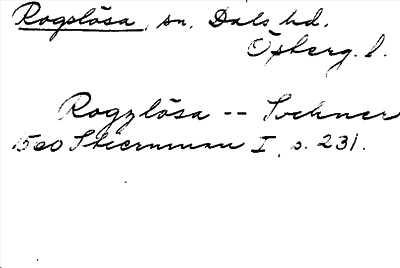 Rogslösa, sn. Dals hd.
Östergl.
Rogzlösa -- Sochner
1560 Stiernman I, s. 231.